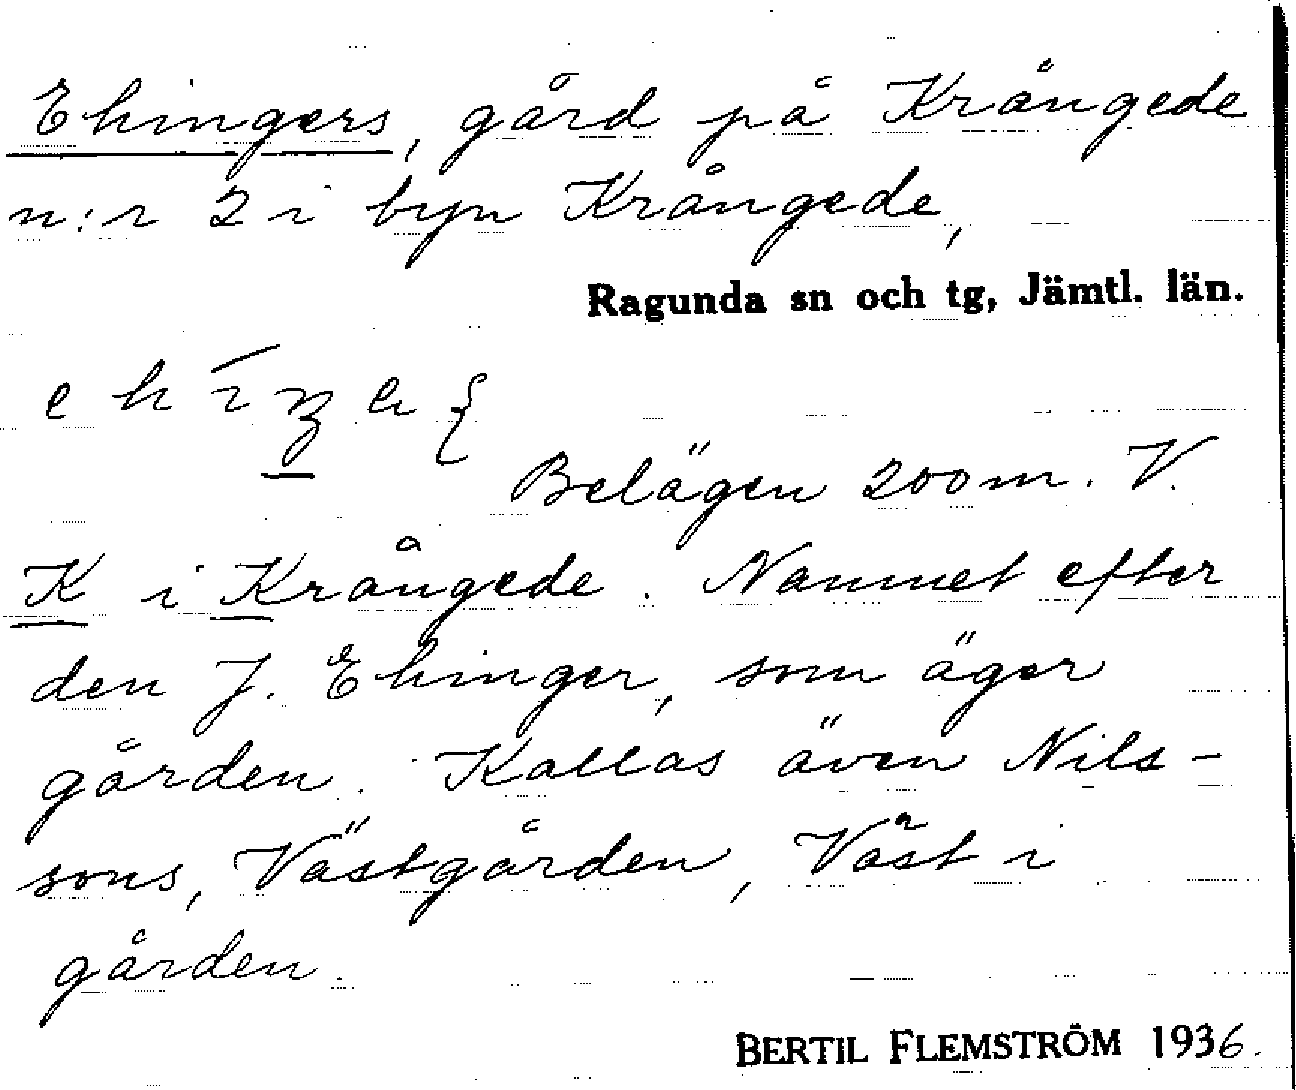 Ehingers, gård på Krångede
n:r 2 i byn Krångede,
Ragunda sn och tg, Jämtl. län.
Belägen 200 m. V.
K i Krångede. Namnet efter
den J. Ehinger, som äger
gården. Kallas även Nils-
sons, Västgården, Väst i
gården.
BERTIL FLEMSTRÖM 1936.